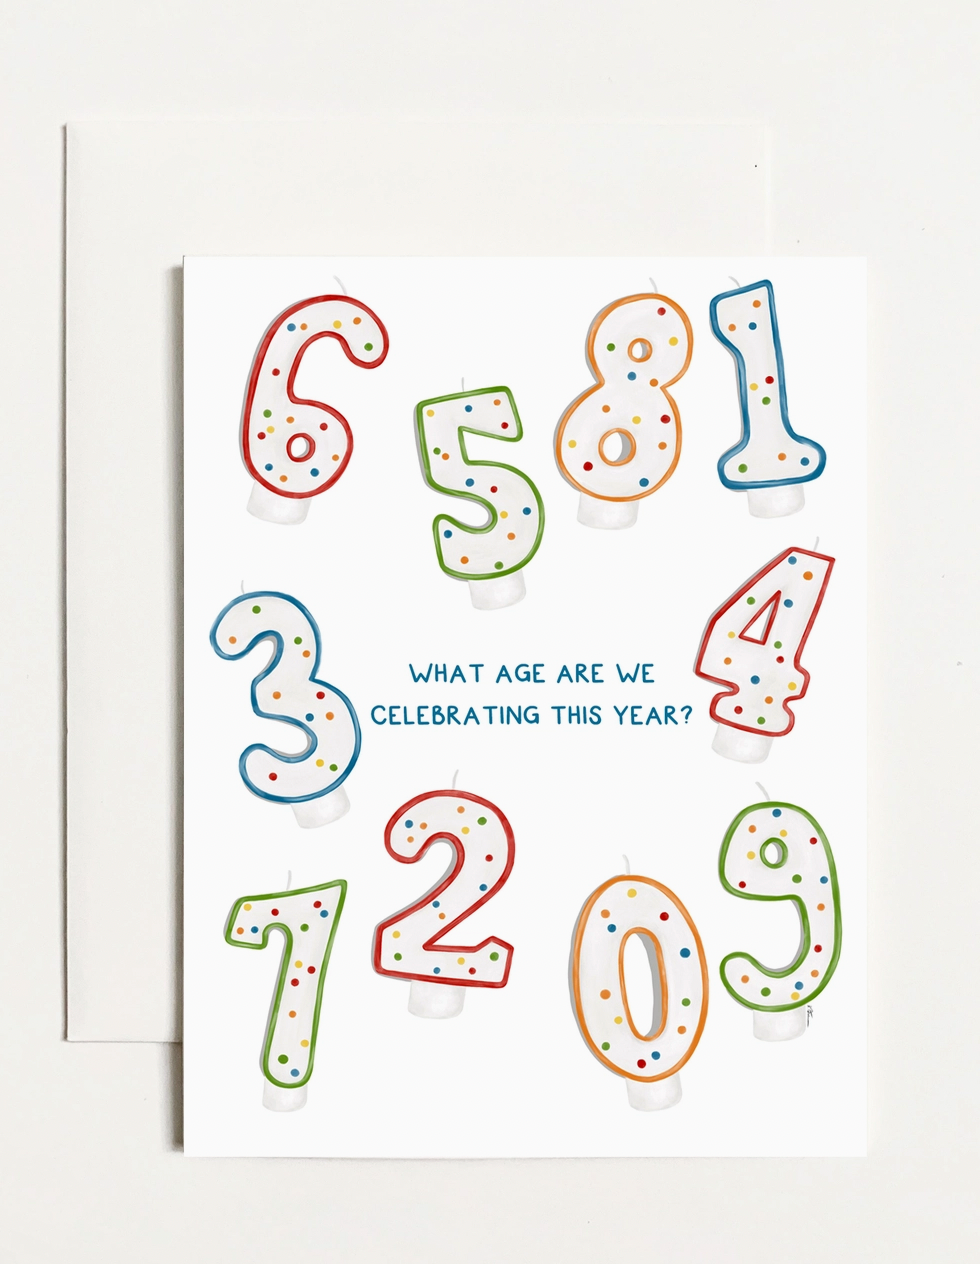 6 5 8 1
3 4
WHAT AGE ARE WE
CELEBRATING THIS YEAR?
7 2 0 9